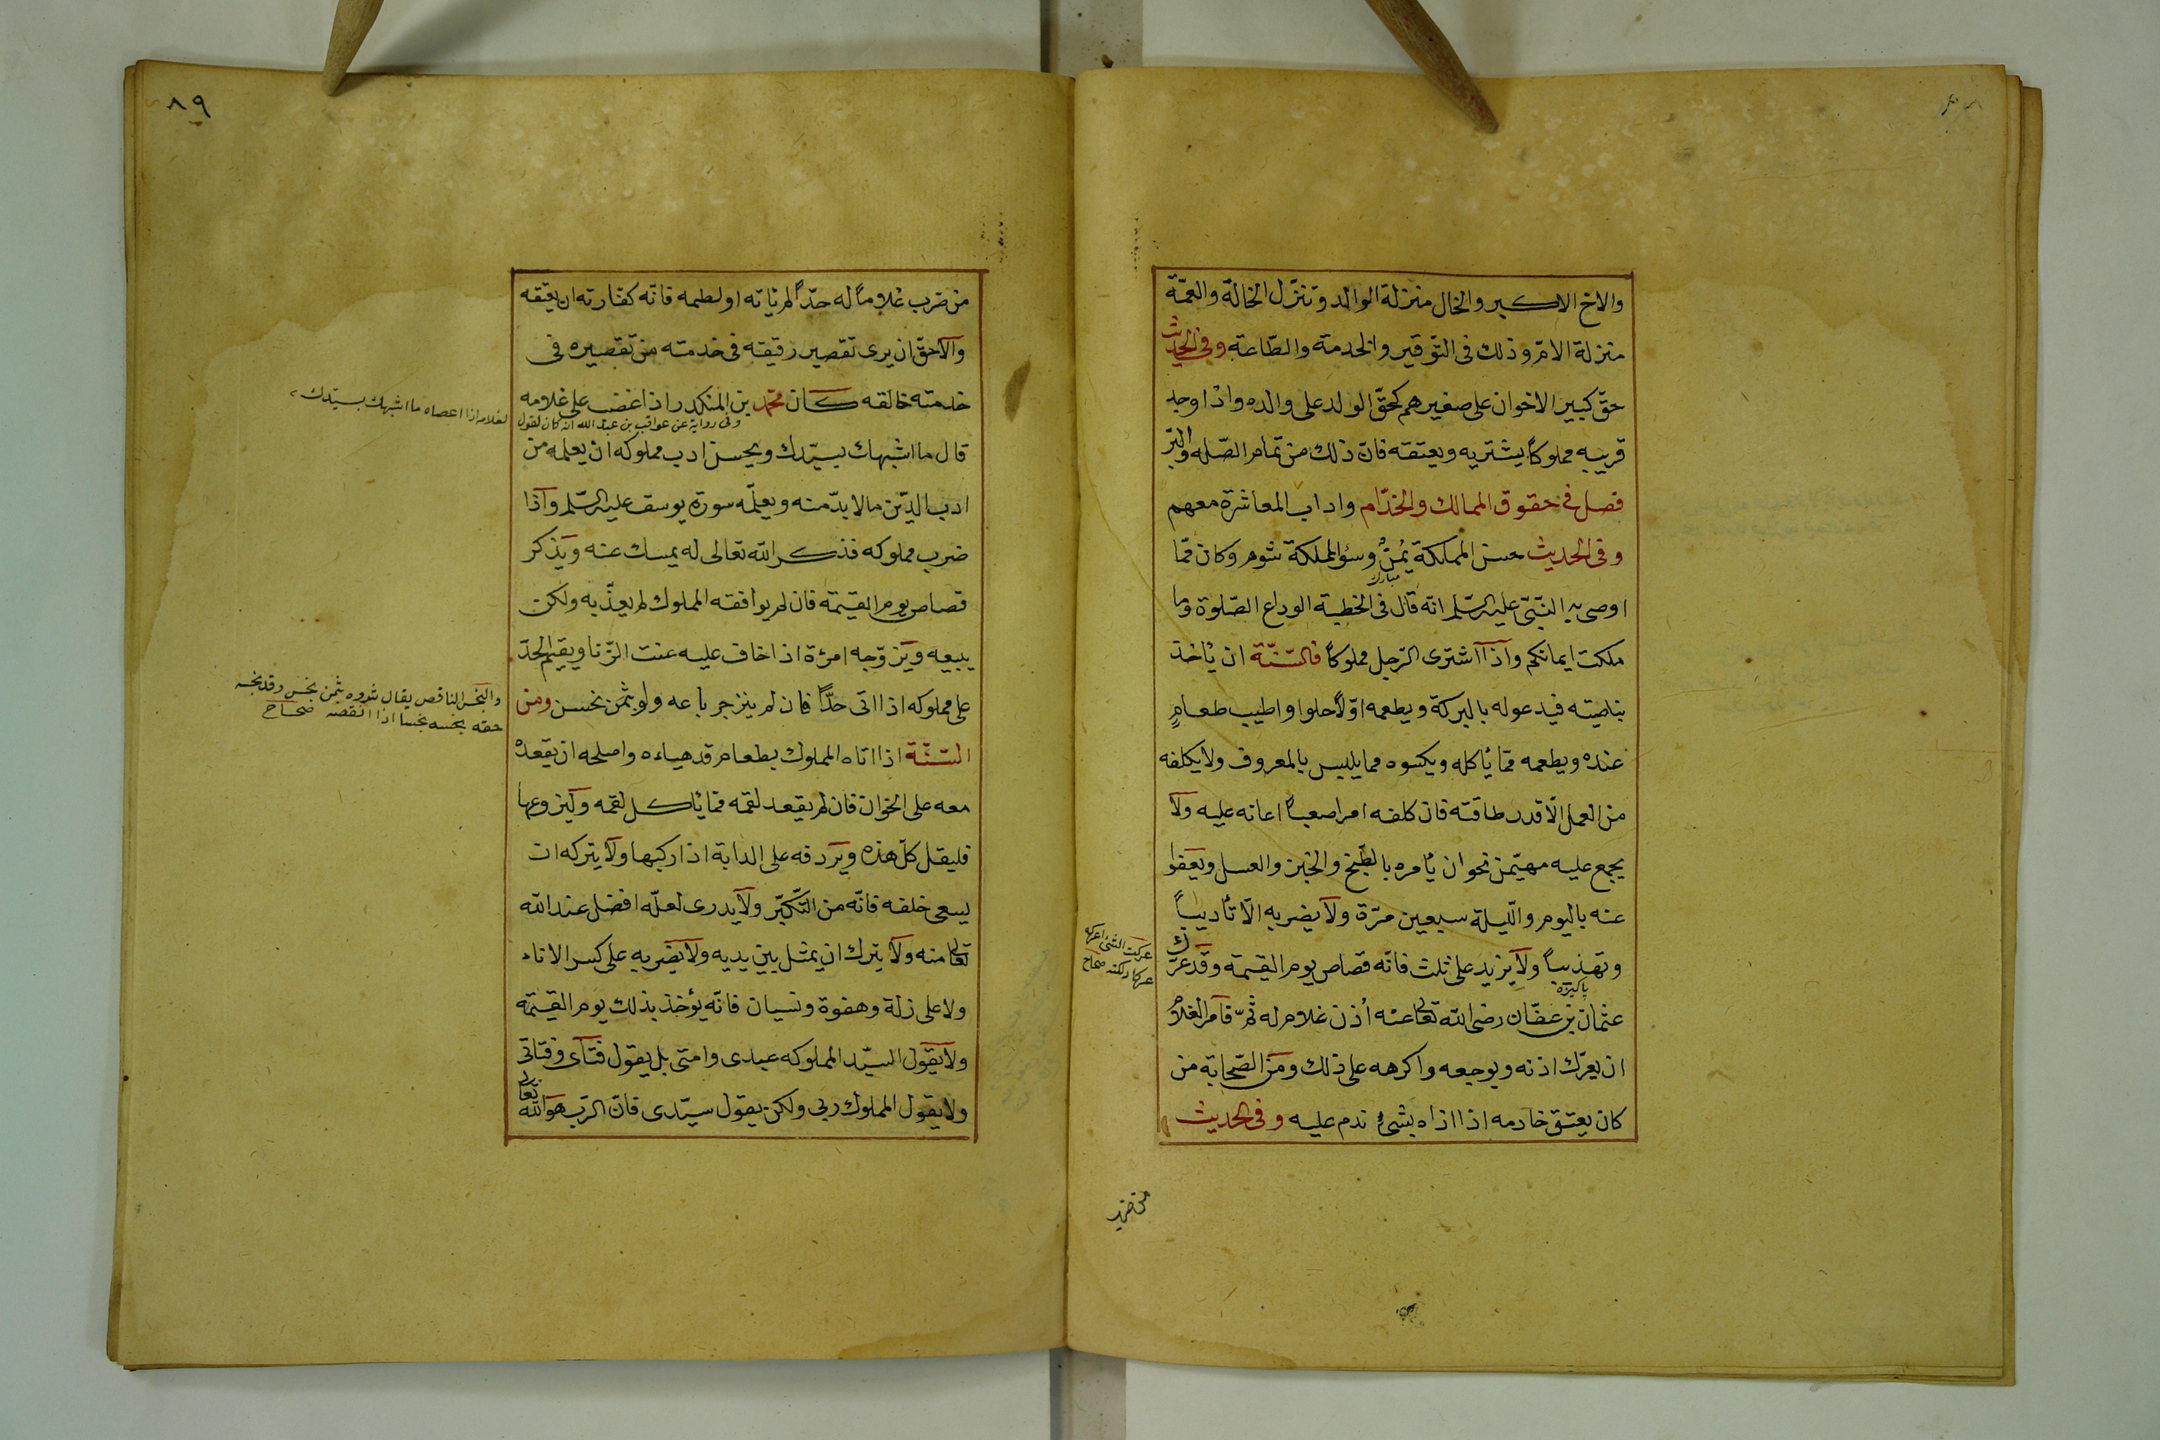 والاخ الاكبر والخال منزلة الوالد وتنزّل الخالة والعمّة
منزلة الامّ وذلك فى التّوقير والخدمة والطّاعة وفى الحديث
حقّ كبير الاخوان على صغيرهم كحقّ الوالد على والده واذا وجد
قريبه مملوكاً يشتريه ويعتقه فانّ ذلك من تمام الصّله والبّر
فصل فى حقوق الممالك والخدّام واداب المعاشرة معهم
وفى الحديث حسن المملكة يُمنٌ وسؤالملكة شوم وكان ممّا
مبارك
اوصى به النّبىّ عليه السّلم انّه قال فى الخطبة الوداع الصّلوة وما
ملكت ايمانكم واذا اشترى الرّجل مملوكاً فالسّنّة ان يأخذ
بناصيته فيدعوله بالبركة ويطعمه اوّلاً حلوا واطيب طعامٍ
عنده ويطعمه ممّا يأكله ويكسوه مما يلبس بالمعروف ولا يكلفه
من العمل الّا قدر طاقته فان كلفه امرا صعباً اعانه عليه ولا
يجمع عليه مهيّمن نحو ان يأمره بالطّبخ والخبز والغسل ويعفوا
عنه باليوم واللّيلة سبعين مرّة ولا يضربه الّا تأديباً
وتهذيباً ولا يزيد على ثلث فانّه قصاص يوم القيمة وقد عرّك
پاكيزه
عثمان بن عفّان رضى الله تعالى عنه اُذن غلام له ثمّ قامر الغلامُ
ان يعرّك اذنه ويوجعه واكرهه على ذلك ومن الصّحابة من
كان يعتق خادمه اذا اذاه بشئ ندم عليه وفى الحديث
عركت الشئ اعركه
عركا دلكته صحاح
من ضرب
٨٩
من ضرب غلاماً له حدّاً لم يأته او لطمه فانّه كفّارته ان يعتقه
والاحقّ ان يرى تقصير رقيقه فى خدمته من تقصيره فى
خدمته خالقه كان محمّد بن المنكدر اذا غضب على غلامه
وفى رواية عن عواقب بن عبد الله انه كان لقول
لغلامه اذا اعصاه ما اشبهك بسيّدك
قال ما اشبهك بسيّدك ويحسن ادب مملوكه ان يعلمه من
ادب الدّين ما لا بدّ منه ويعلّمه سورة يوسف عليه السّلم واذا
ضرب مملوكه فذكر الله تعالى له يمسك عنه ويذكر
قصاص يوم القيمة فان لم يوافقه المملوك لم يعذّبه ولكن
يبيعه ويزوّجه امرٔة اذا خاف عليه عنت الزّنا ويقيم الحدّ
على مملوكه اذا اتى حدّاً فان لم ينزجر باعه ولو بثمن نحسن ومن
والبخس الناقص يقال شروه بثمن بخس وقد بخسه
حقه يبخسه بخسا اذا انقصه صحاح
السّنّة اذا اتاه المملوك بطعام قد هياءه واصلحه ان يقعده
معه على الخوان فان لم يقعد لقمه ممّا يأكل لقمه وليزوعها
فليقل كلّ هذه ويردفه على الدابة اذا ركبها ولا يتركه ان
يسعى خلفه فانّه من التّكبّر ولا يدرى لعلّه افضل عند الله
تعالى منه ولا يترك ان يمثل بين يديه ولا يضربه على كسر الاناء
ولا على زلة وهفوة ونسيان فانّه يؤخذ بذلك يوم القيمة
ولا يقول السيّد المملوكه عبدى وامتى بل يقول فتاى وفتاتى
ولا يقول المملوك ربى ولكن يقول سيّدى فانّ الرّب هو الله تعالى